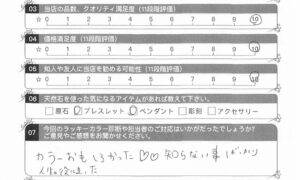 03 当店の品数、クオリティ満足度（11段階評価）
0 1 2 3 4 5 6 7 8 9 10
04 価格満足度（11段階評価）
0 1 2 3 4 5 6 7 8 9 10
05 知人や友人に当店を勧める可能性（11段階評価）
0 1 2 3 4 5 6 7 8 9 10
06 天然石を使った気になるアイテムがあれば教えて下さい。
□原石 □ブレスレット □ペンダント □彫刻 □アクセサリー
07 今回のラッキーカラー診断や担当者のご対応はいかがだったでしょうか？
ご意見やご感想をお聞かせください。
カラーおもしろかった♡♡ 知らない事ばかり